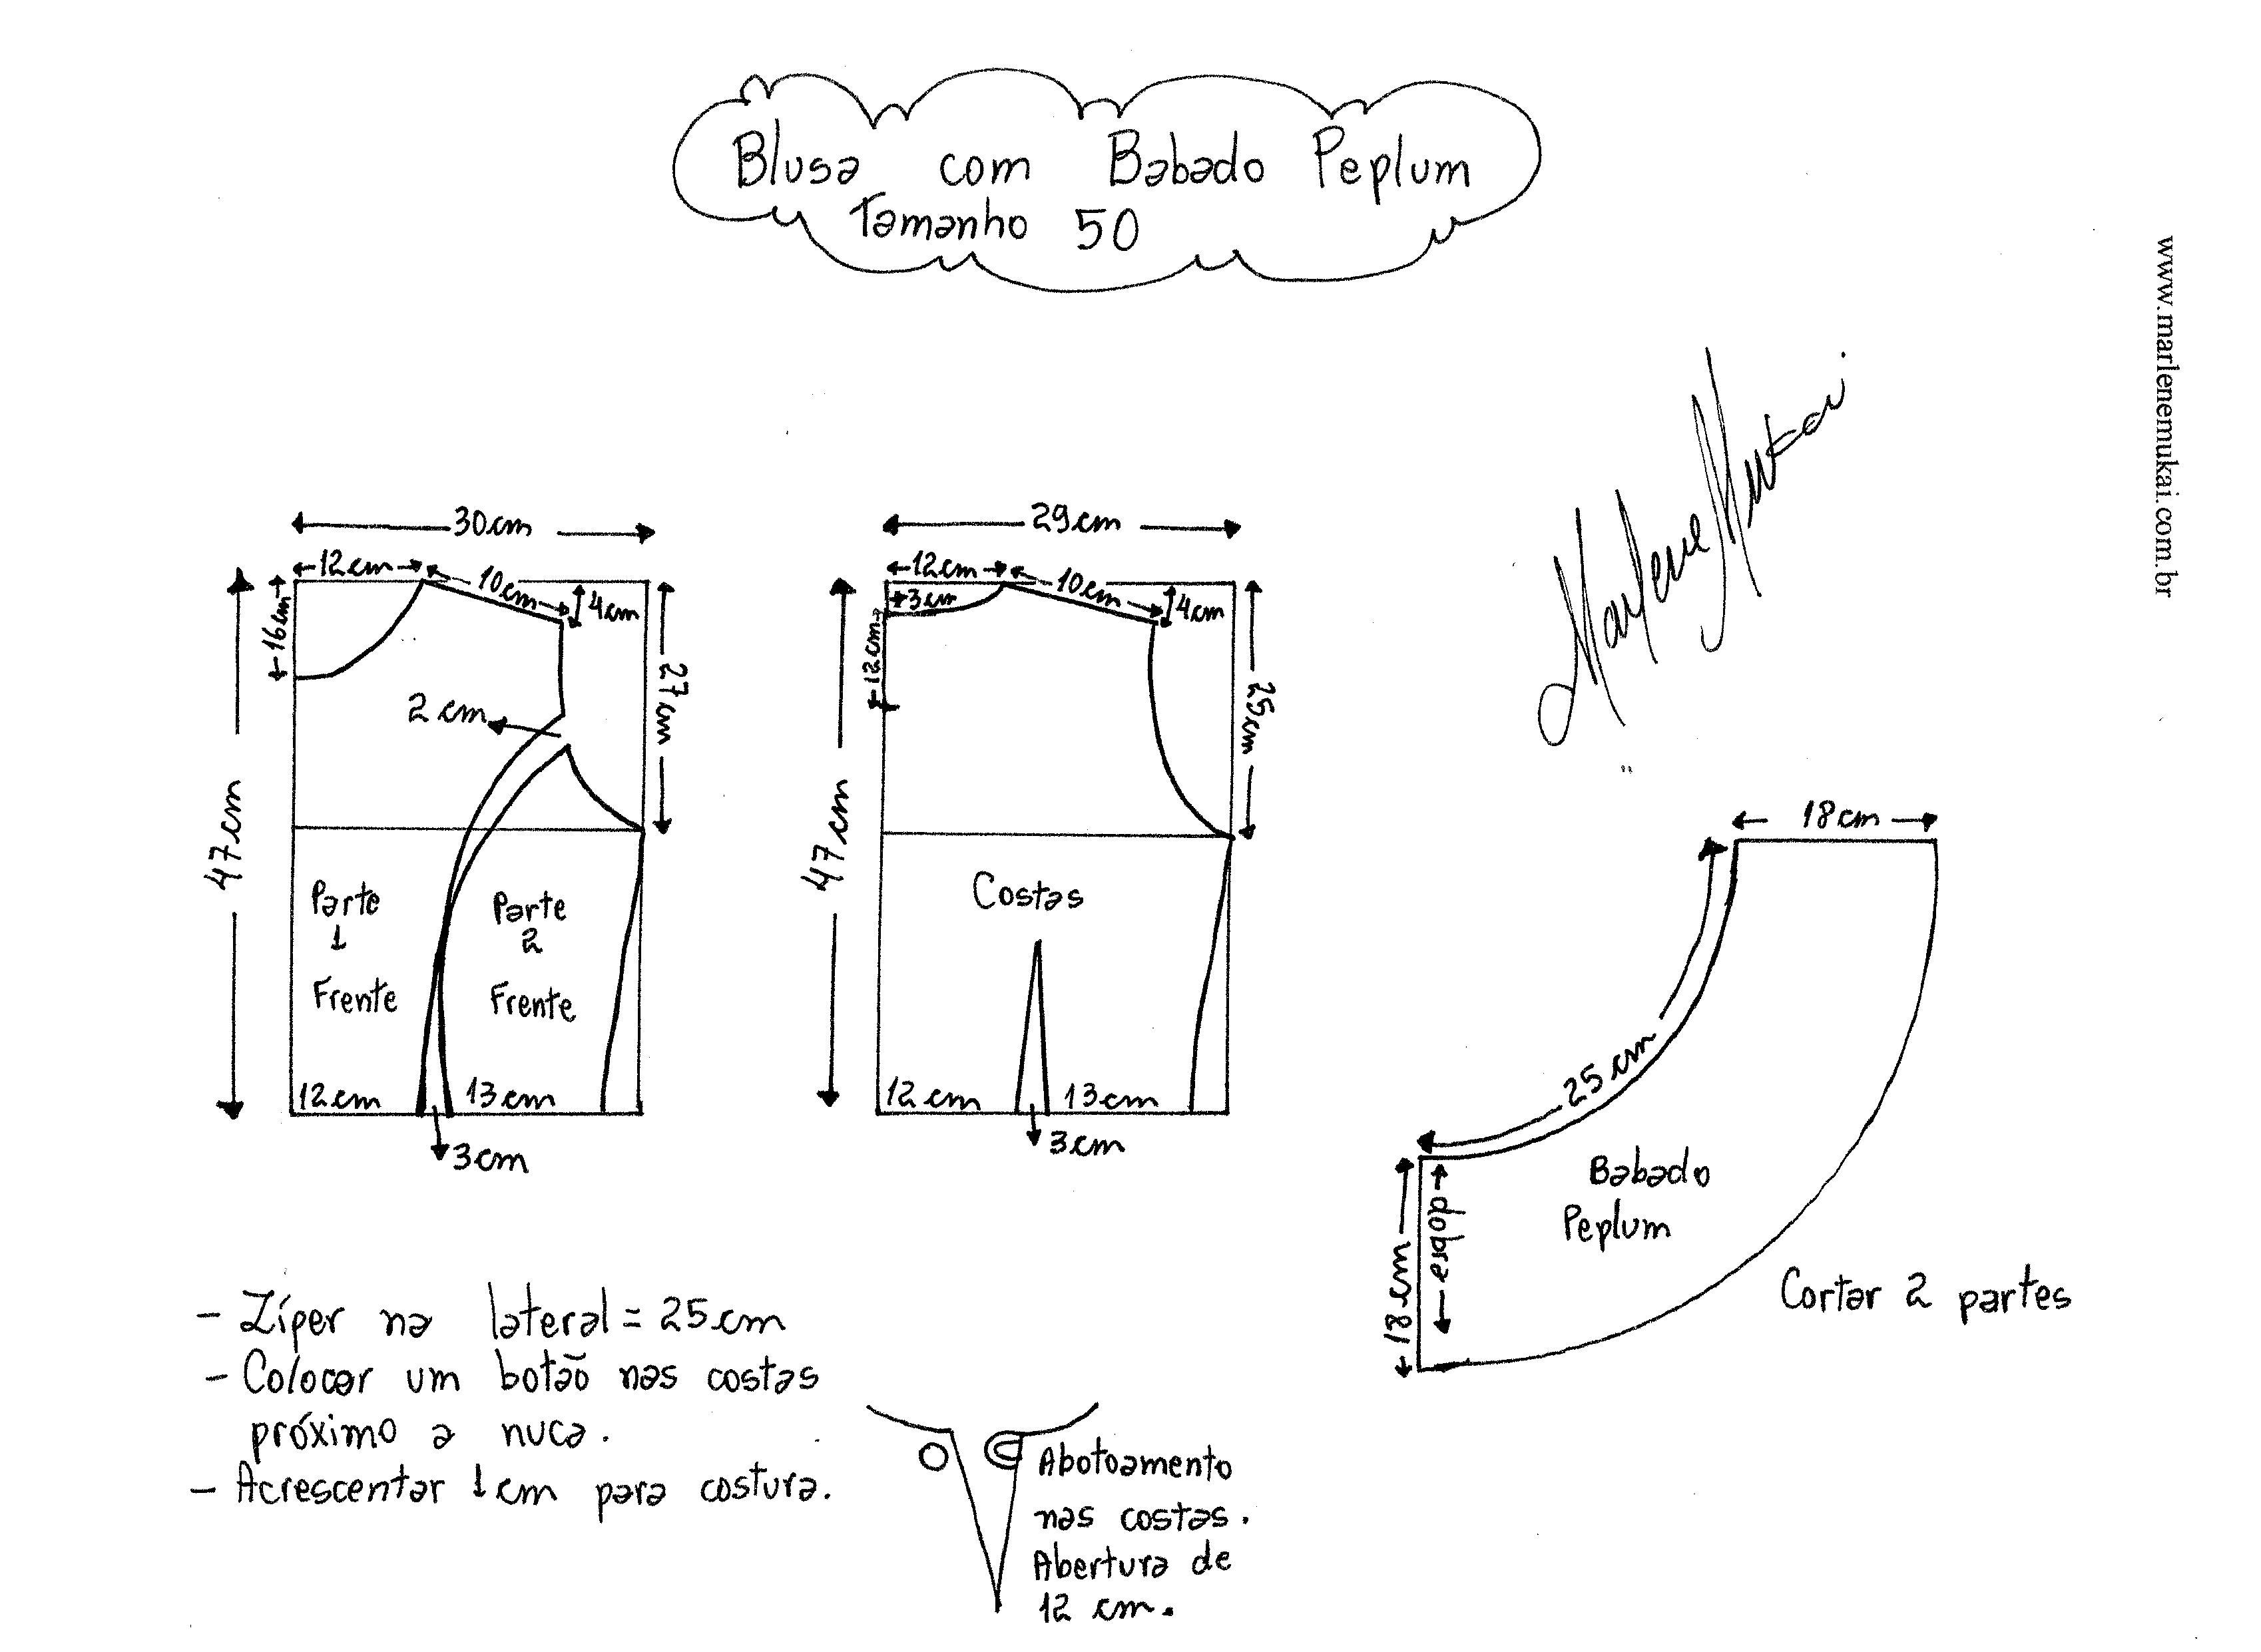 Blusa com Babado Peplum
Tamanho 50
www.marlenemukai.com.br
Marlene Mukai
30cm
12cm
10cm
4cm
16cm
27cm
2cm
47cm
Parte
1
Frente
Parte
2
Frente
12cm
13cm
3cm
29cm
12cm
10cm
4cm
3cm
12cm
25cm
47cm
Costas
12cm
13cm
3cm
18cm
25cm
Babado
Peplum
dobra
18cm
Cortar 2 partes
- Zíper na lateral = 25cm
- Colocar um botão nas costas
próximo a nuca.
- Acrescentar 1cm para costura.
Abotoamento
nas costas.
Abertura de
12 cm.